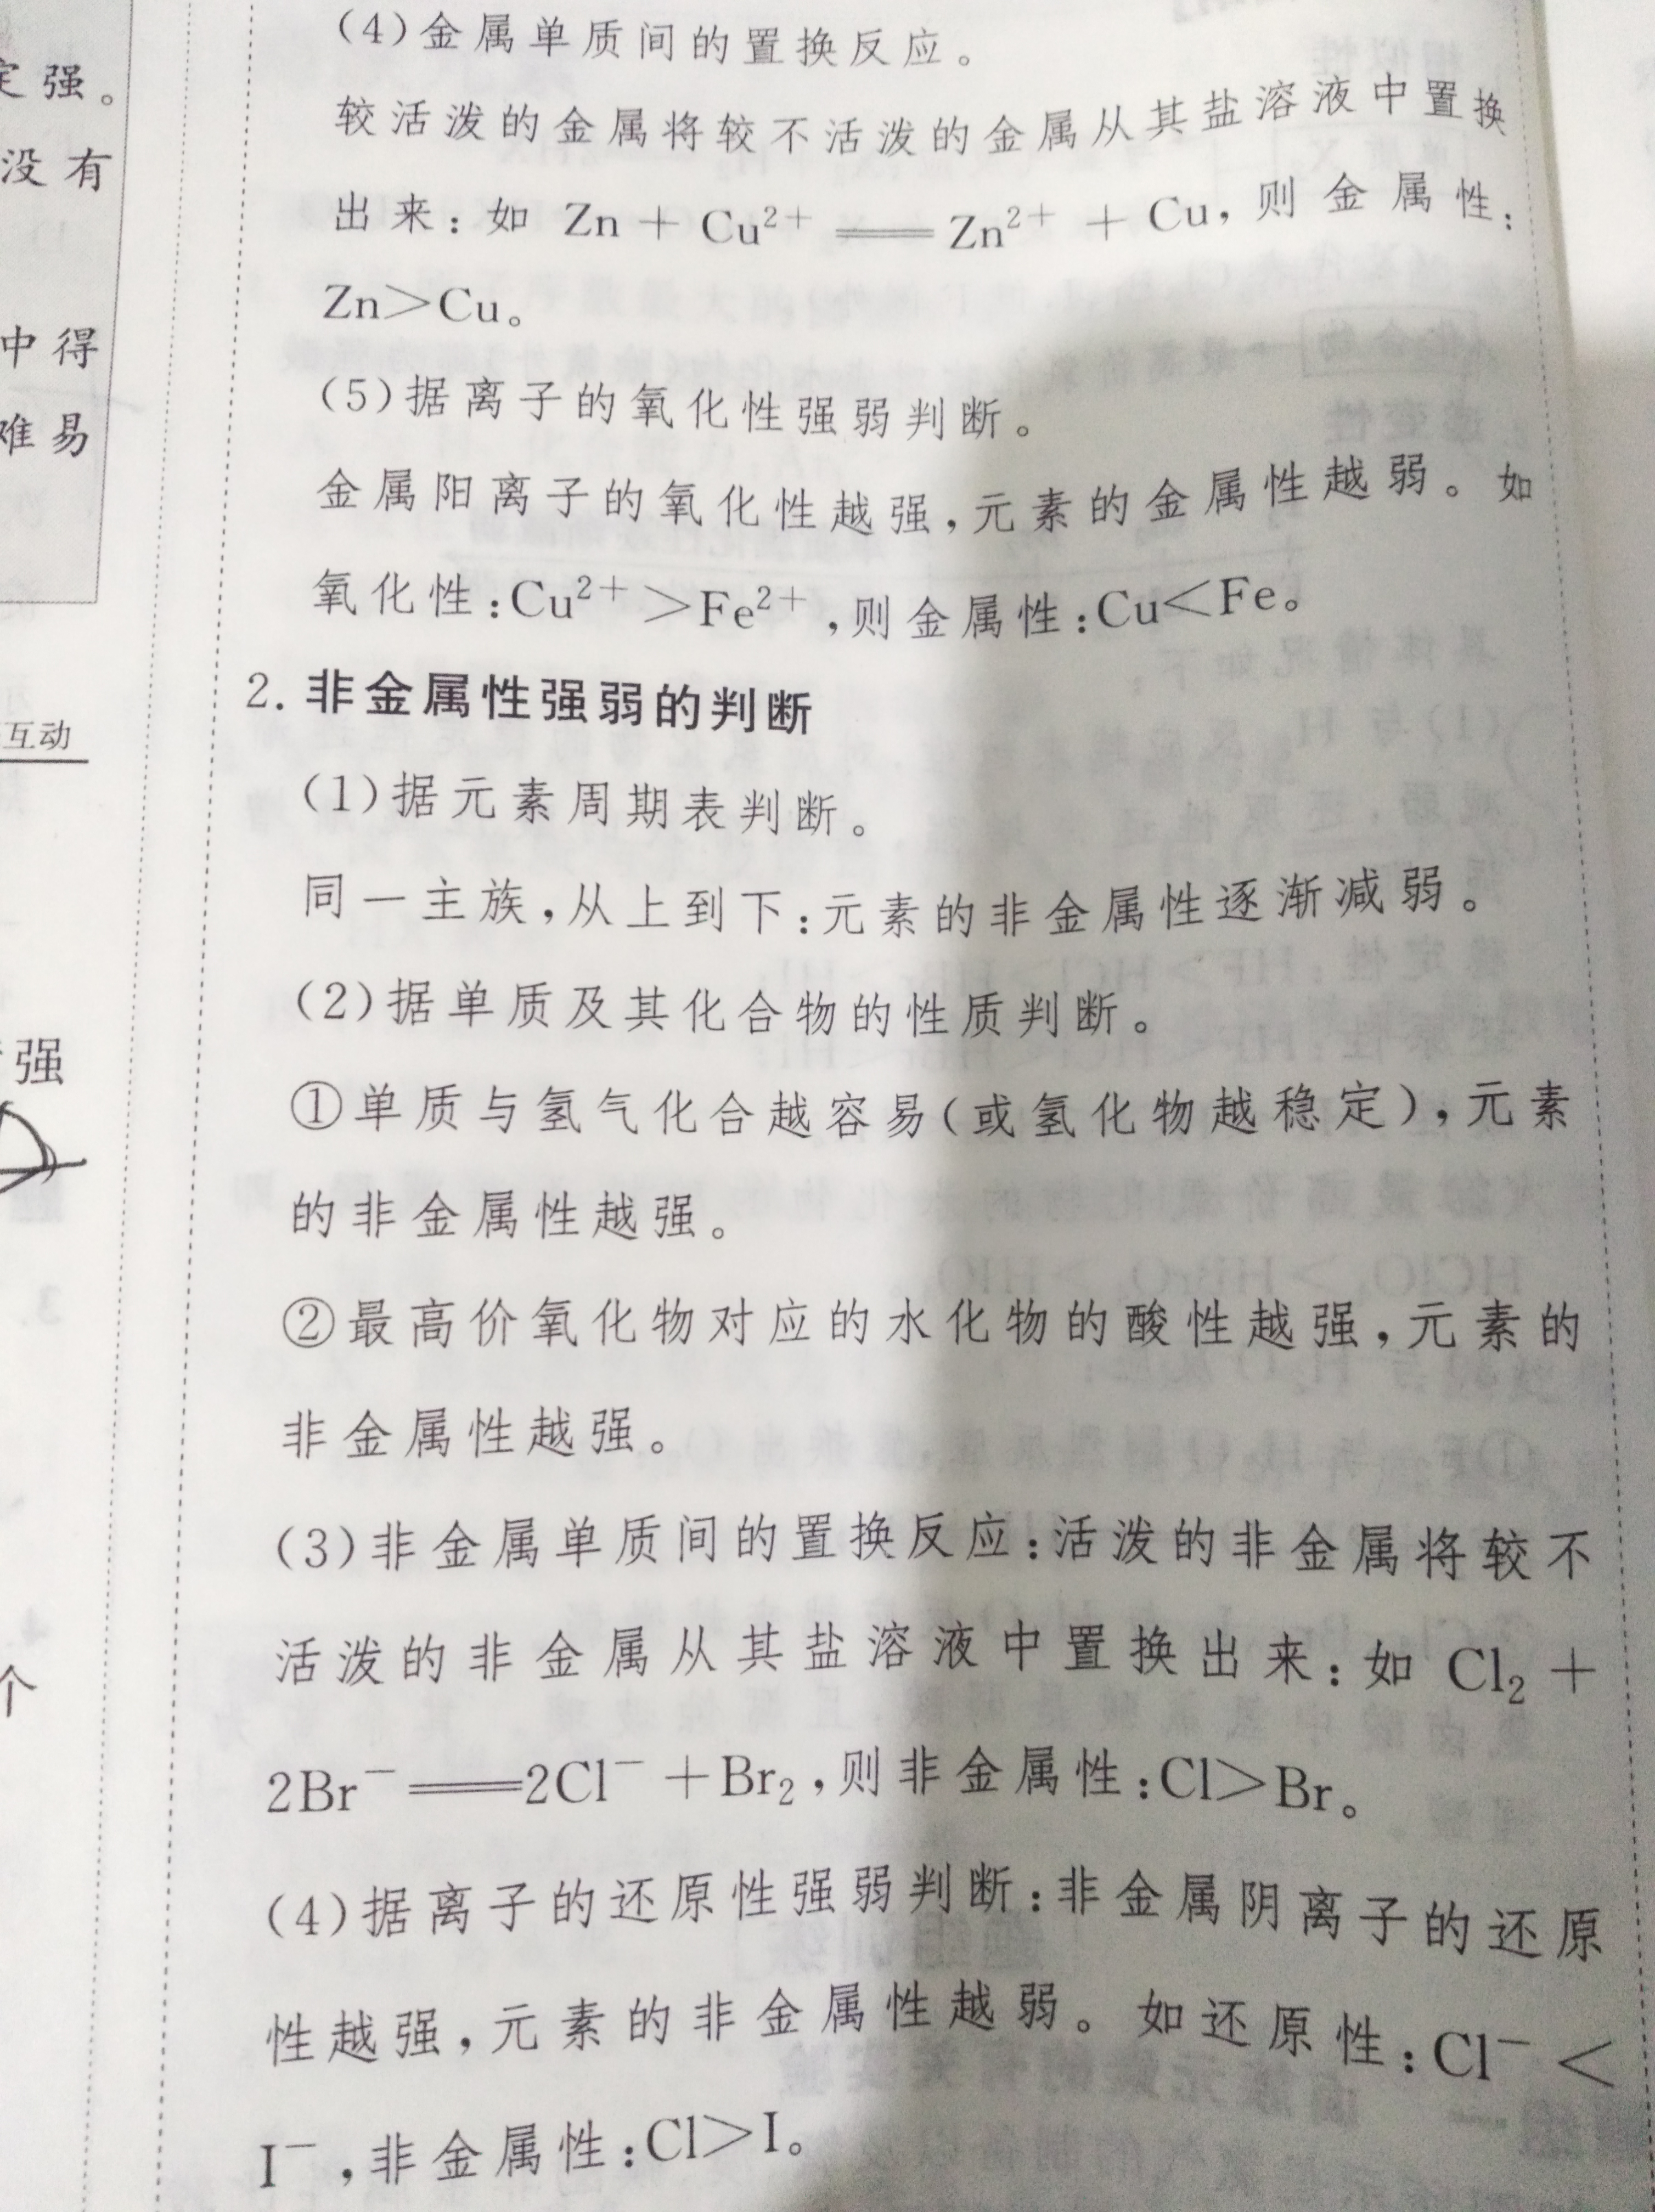 定强。
没有
中得
难易
互动
强
个
(4)金属单质间的置换反应。
较活泼的金属将较不活泼的金属从其盐溶液中置换
出来:如 Zn + Cu²⁺ ══ Zn²⁺ + Cu,则金属性:
Zn>Cu。
(5)据离子的氧化性强弱判断。
金属阳离子的氧化性越强,元素的金属性越弱。如
氧化性:Cu²⁺>Fe²⁺,则金属性:Cu<Fe。
2. 非金属性强弱的判断
(1)据元素周期表判断。
同一主族,从上到下:元素的非金属性逐渐减弱。
(2)据单质及其化合物的性质判断。
①单质与氢气化合越容易(或氢化物越稳定),元素
的非金属性越强。
②最高价氧化物对应的水化物的酸性越强,元素的
非金属性越强。
(3)非金属单质间的置换反应:活泼的非金属将较不
活泼的非金属从其盐溶液中置换出来:如 Cl₂ +
2Br⁻══2Cl⁻+Br₂,则非金属性:Cl>Br。
(4)据离子的还原性强弱判断:非金属阴离子的还原
性越强,元素的非金属性越弱。如还原性:Cl⁻<
I⁻,非金属性:Cl>I。